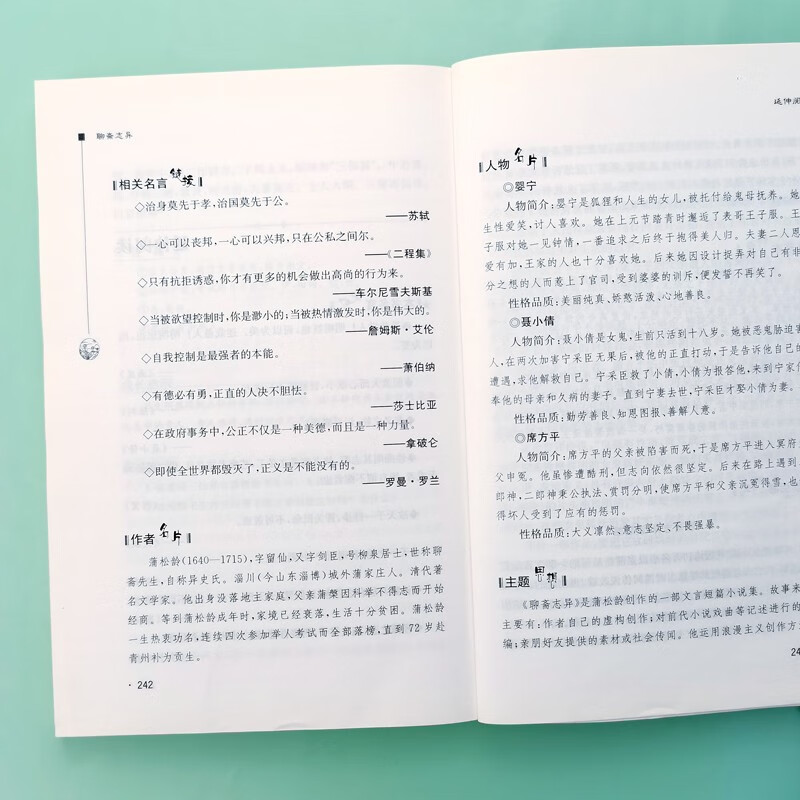 聊斋志异
相关名言链接
◇治身莫先于孝,治国莫先于公。
——苏轼
◇一心可以丧邦,一心可以兴邦,只在公私之间尔。
——《二程集》
◇只有抗拒诱惑,你才有更多的机会做出高尚的行为来。
——车尔尼雪夫斯基
◇当被欲望控制时,你是渺小的;当被热情激发时,你是伟大的。
——詹姆斯·艾伦
◇自我控制是最强者的本能。
——萧伯纳
◇有德必有勇,正直的人决不胆怯。
——莎士比亚
◇在政府事务中,公正不仅是一种美德,而且是一种力量。
——拿破仑
◇即使全世界都毁灭了,正义是不能没有的。
——罗曼·罗兰
作者名片
蒲松龄(1640—1715),字留仙,又字剑臣,号柳泉居士,世称聊
斋先生,自称异史氏。淄川(今山东淄博)城外蒲家庄人。清代著
名文学家。他出身没落地主家庭,父亲蒲槃因科举不得志而开始
经商。等到蒲松龄成年时,家境已经衰落,生活十分贫困。蒲松龄
一生热衷功名,连续四次参加举人考试而全部落榜,直到72岁赴
青州补为贡生。
·242
延伸阅
人物名片
◎婴宁
人物简介:婴宁是狐狸和人生的女儿,被托付给鬼母抚养。她
生性爱笑,讨人喜欢。她在上元节踏青时邂逅了表哥王子服。王
子服对她一见钟情,一番追求之后终于抱得美人归。夫妻二人恩
爱有加,王家的人也十分喜欢她。后来她因设计捉弄对自己有非
分之想的人而惹上了官司,受到婆婆的训斥,便发誓不再笑了。
性格品质:美丽纯真、娇憨活泼、心地善良。
◎聂小倩
人物简介:聂小倩是女鬼,生前只活到十八岁。她被恶鬼胁迫害
人,在两次加害宁采臣无果后,被他的正直打动,于是告诉他自己的
遭遇,求他解救自己。宁采臣救了小倩,小倩为报答他,来到宁家侍
奉他的母亲和久病的妻子。直到宁妻去世,宁采臣才娶小倩为妻。
性格品质:勤劳善良、知恩图报、善解人意。
◎席方平
人物简介:席方平的父亲被陷害而死,于是席方平进入冥府
父申冤。他虽惨遭酷刑,但志向依然很坚定。后来在路上遇到
郎神,二郎神秉公执法、赏罚分明,使席方平和父亲沉冤得雪,也
得坏人受到了应有的惩罚。
性格品质:大义凛然、意志坚定、不畏强暴。
主题思想
《聊斋志异》是蒲松龄创作的一部文言短篇小说集。故事来
主要有:作者自己的虚构创作;对前代小说戏曲等记述进行的
编;亲朋好友提供的素材或社会传闻。他运用浪漫主义创作方
24